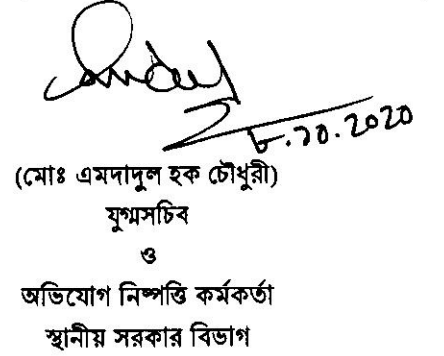 ৮.১০.২০২০
(মোঃ এমদাদুল হক চৌধুরী)
যুগ্মসচিব
ও
অভিযোগ নিষ্পত্তি কর্মকর্তা
স্থানীয় সরকার বিভাগ